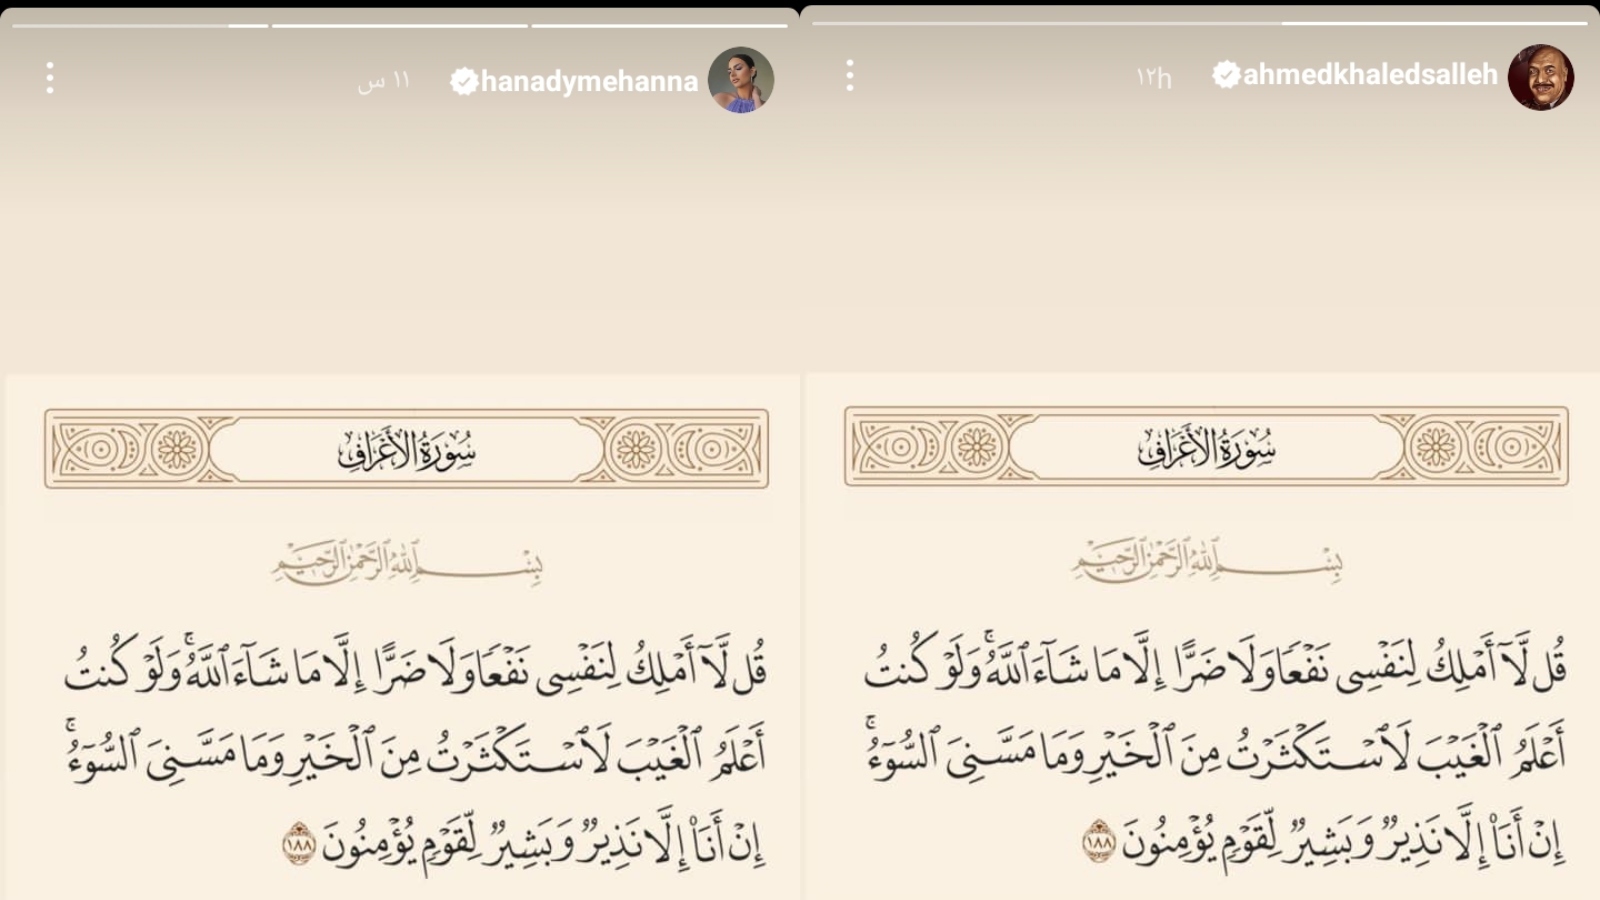 hanadymehanna ١١ س
سُورَةُ الأَعْرَافِ
بِسْمِ اللَّهِ الرَّحْمَٰنِ الرَّحِيمِ
قُل لَّآ أَمْلِكُ لِنَفْسِى نَفْعًا وَلَا ضَرًّا إِلَّا مَا شَآءَ ٱللَّهُ ۚ وَلَوْ كُنتُ
أَعْلَمُ ٱلْغَيْبَ لَٱسْتَكْثَرْتُ مِنَ ٱلْخَيْرِ وَمَا مَسَّنِىَ ٱلسُّوٓءُ ۚ
إِنْ أَنَا۠ إِلَّا نَذِيرٌ وَبَشِيرٌ لِّقَوْمٍ يُؤْمِنُونَ ١٨٨
ahmedkhaledsalleh ١٢h
سُورَةُ الأَعْرَافِ
بِسْمِ اللَّهِ الرَّحْمَٰنِ الرَّحِيمِ
قُل لَّآ أَمْلِكُ لِنَفْسِى نَفْعًا وَلَا ضَرًّا إِلَّا مَا شَآءَ ٱللَّهُ ۚ وَلَوْ كُنتُ
أَعْلَمُ ٱلْغَيْبَ لَٱسْتَكْثَرْتُ مِنَ ٱلْخَيْرِ وَمَا مَسَّنِىَ ٱلسُّوٓءُ ۚ
إِنْ أَنَا۠ إِلَّا نَذِيرٌ وَبَشِيرٌ لِّقَوْمٍ يُؤْمِنُونَ ١٨٨